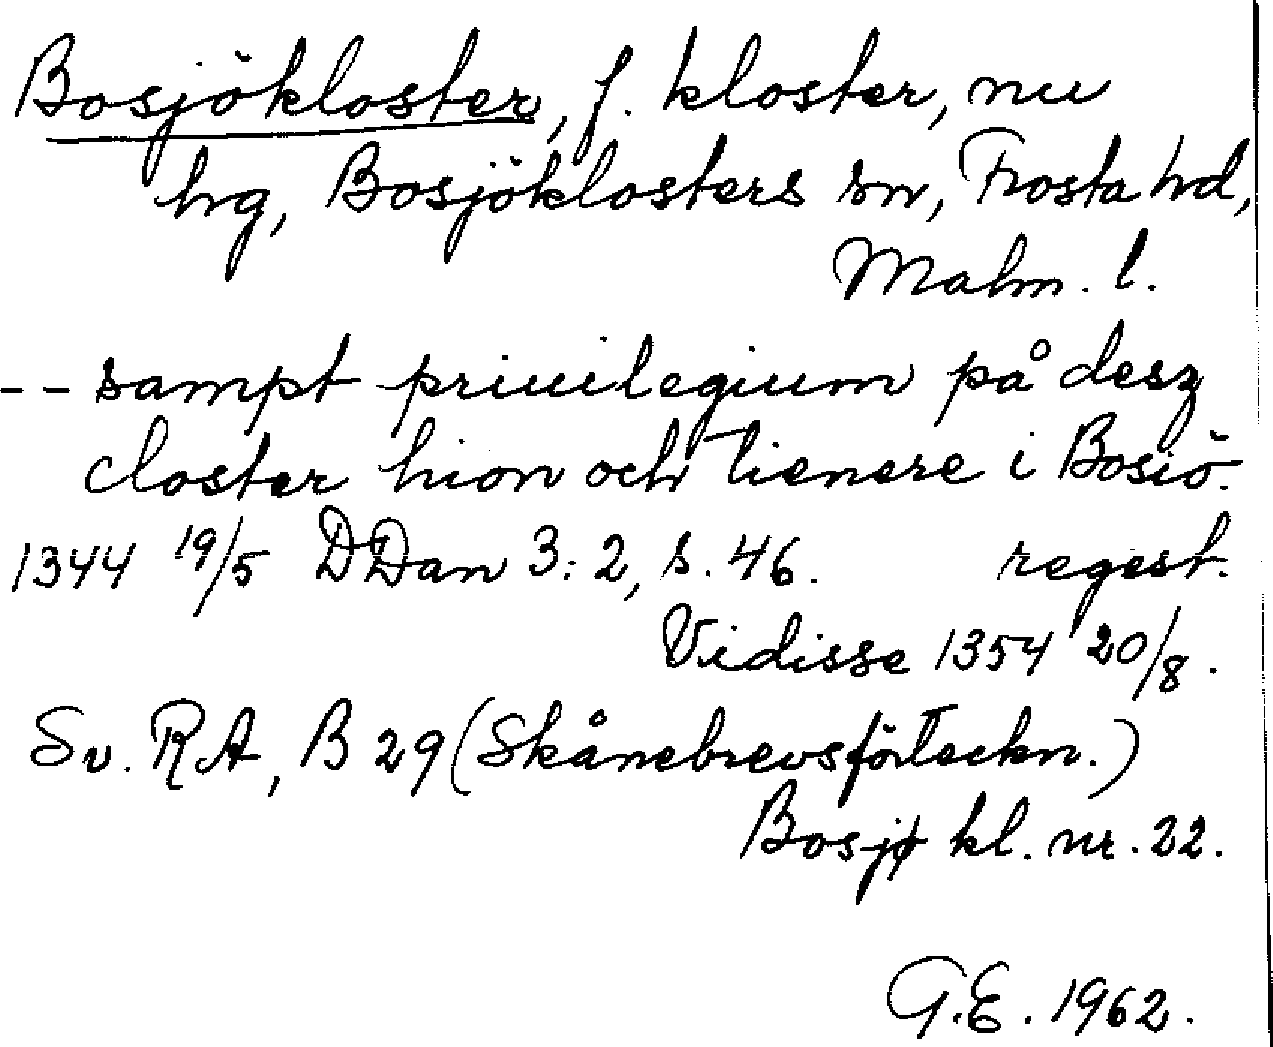 Bosjökloster, f. kloster, nu
hg, Bosjöklosters sn, Frosta hd,
Malm. l.
-- sampt priuilegium på desz
closter hion och tienere i Bosiö.
1344 19/5 DDan 3:2, s. 46. regest.
Vidisse 1354 20/8.
Sv. RA, B 29 (Skånebrevsförteckn.)
Bosjø kl. nr. 22.
G.E. 1962.